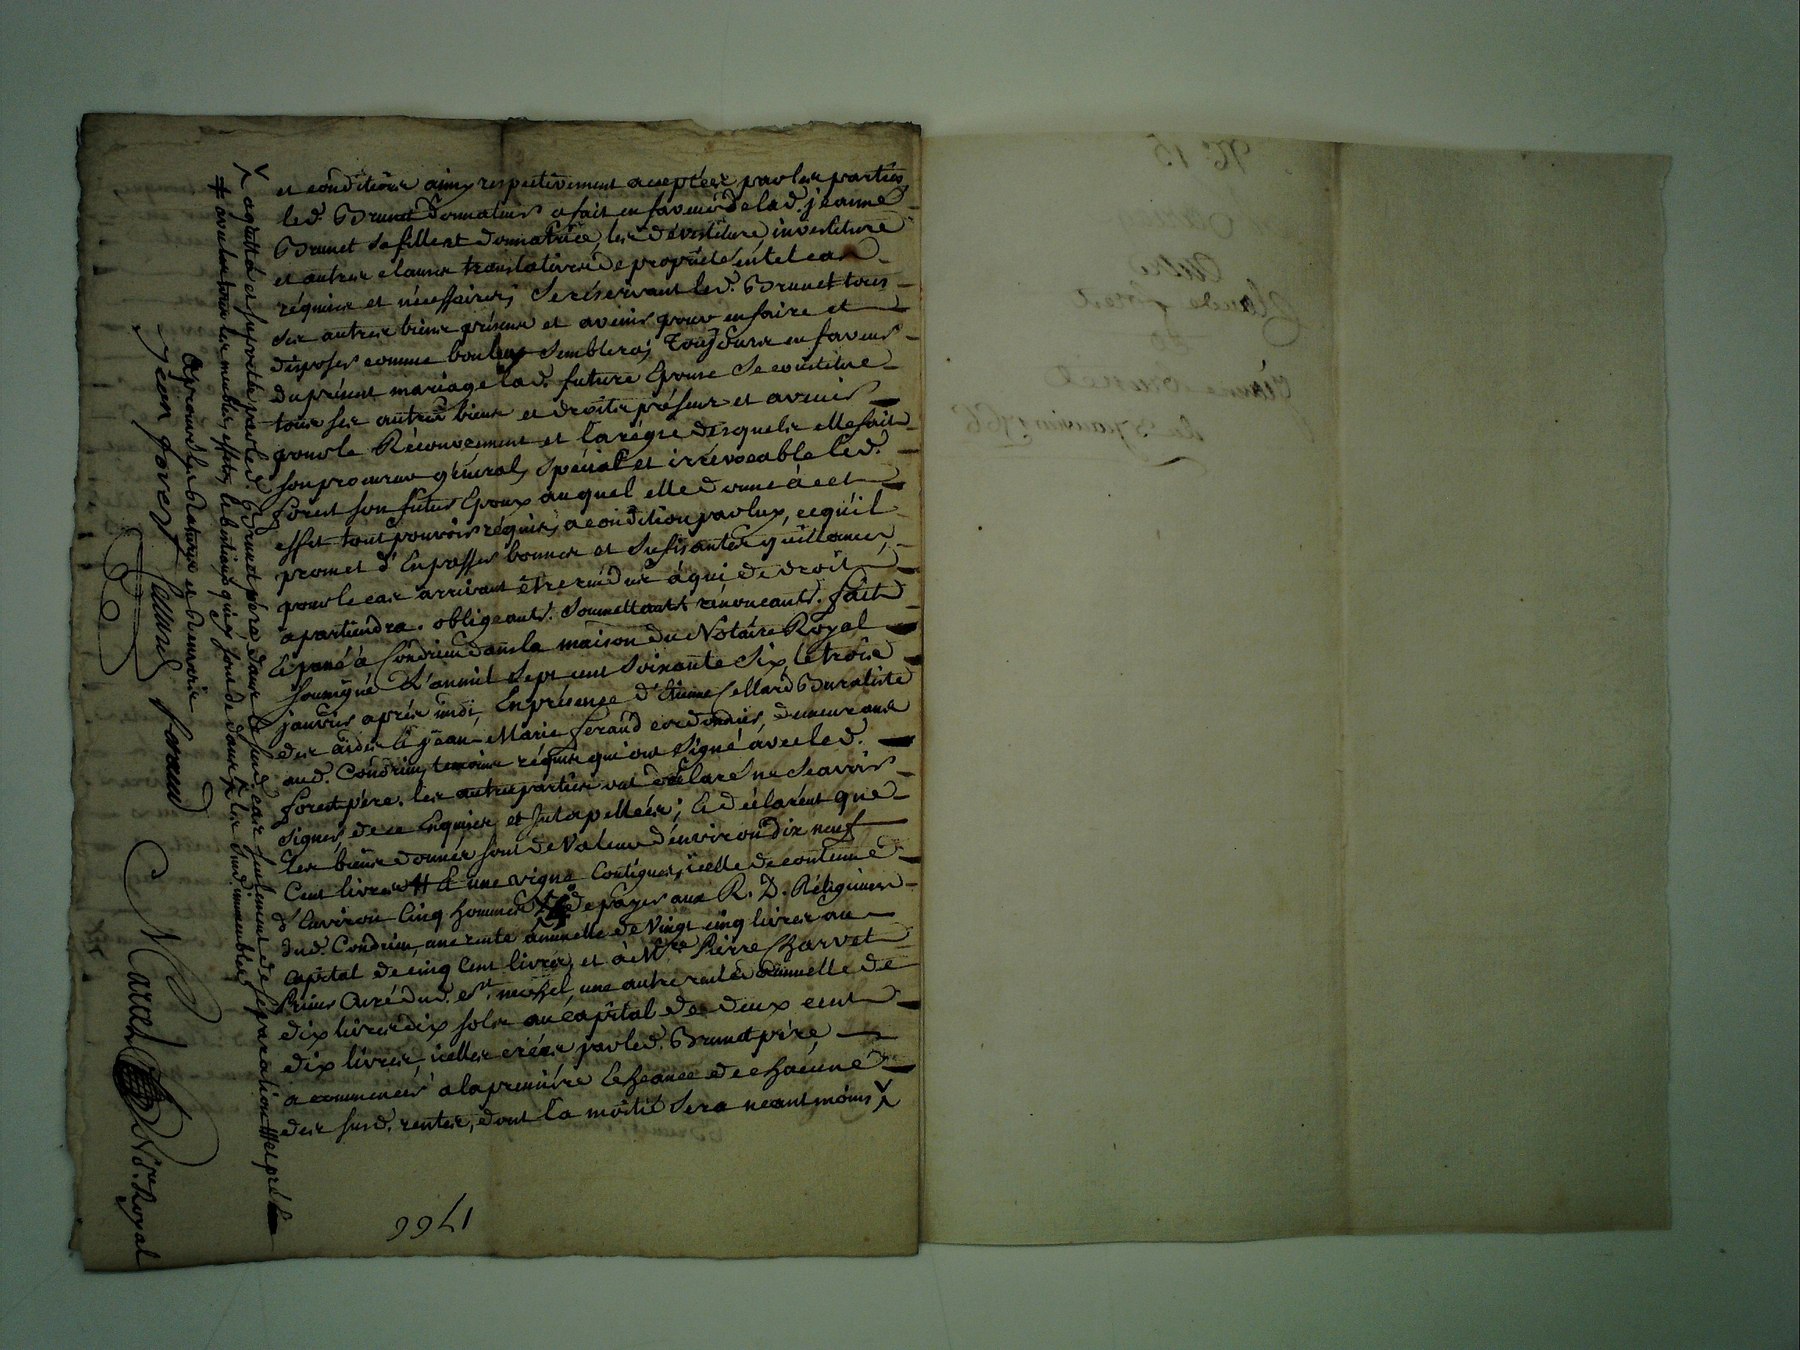 et conditions ainsy respectivement acceptées par les parties
led. Brunet donnateur a fait en faveur de lad. jeanne
Brunet sa fille et donnatrice, les dévestiture, investiture
et autres clauses translatives de propriété en tel cas
réquises et nécessaires, se réservant led. Brunet tous
ses autres biens présens et avenir pour en faire et
disposer comme bon luy semblera; Toujours en faveur
du présent mariage lad. future Epouse se constitue
tous ses autres biens et droits présens et avenir
pour le Récouvrement et la régie desquels elle fait
son procureur général, spécial et irrévocable led.
forest son futur Epoux auquel elle donne à cet
effet tout pouvoir réquis, a condition par luy, ce qu'il
promet d'En passer bonnes et sufisantes quittances,
pour le cas arrivant être rendues à qui de droit
apartiendra. obligeants. soumettants. rénonceants. fait
et passé à Condrieu dans la maison du Notaire Royal
soussigné L'an mil sept cent soixante six, le trois
janvier après midi, En présence d'Etienne Buraliste
des aides & jean-Marie feraud cordonnier, demeurans
aud. Condrieu, temoins réquis qui ont signé avec led.
forest père. les autres parties ont déclaré ne sçavoir
signer, de ce Enquises et Interpellées; & déclarent que
les biens donnés sont de valeur d'environ dix neuf
Cent livres # & une vigne Contigue, icelle de contenue
d'Environ Cinq hommées de payer aux R. D. Réligieuses
dud. Condrieu, une rente annuelle de Vingt cinq livres au
capital de cinq Cent livres, et à Mre. Pierre Charvet
Prieur Curé dud. St. michel, une autre rente annuelle de
dix livres dix sols au capital de deux cent
dix livres, icelles créées par led. Brunet père,
a commencer a la première Echeance de chacune
des susd. rentes, dont la moitié sera neantmoins
aquitté et suportée par led. Brunet père, dans le susd. cas seulement de séparation
# avec tous les meubles, effets, & bestiaux qui y sont de dans les susd. immeubles
Aprouvé les Ratures et
jean forest
feraud
Marcel Nore. Royal
1766
N° 15
Claude forest
Jeanne Brunet
du 3 janvier 1766